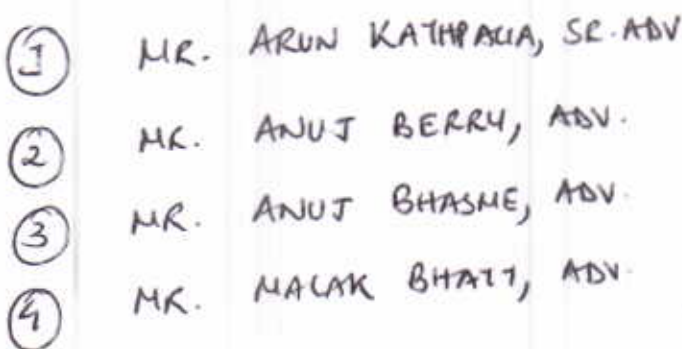 1 MR. ARUN KATHPALIA, SR. ADV
2 MR. ANUJ BERRY, ADV.
3 MR. ANUJ BHASME, ADV.
4 MR. MALAK BHATT, ADV.